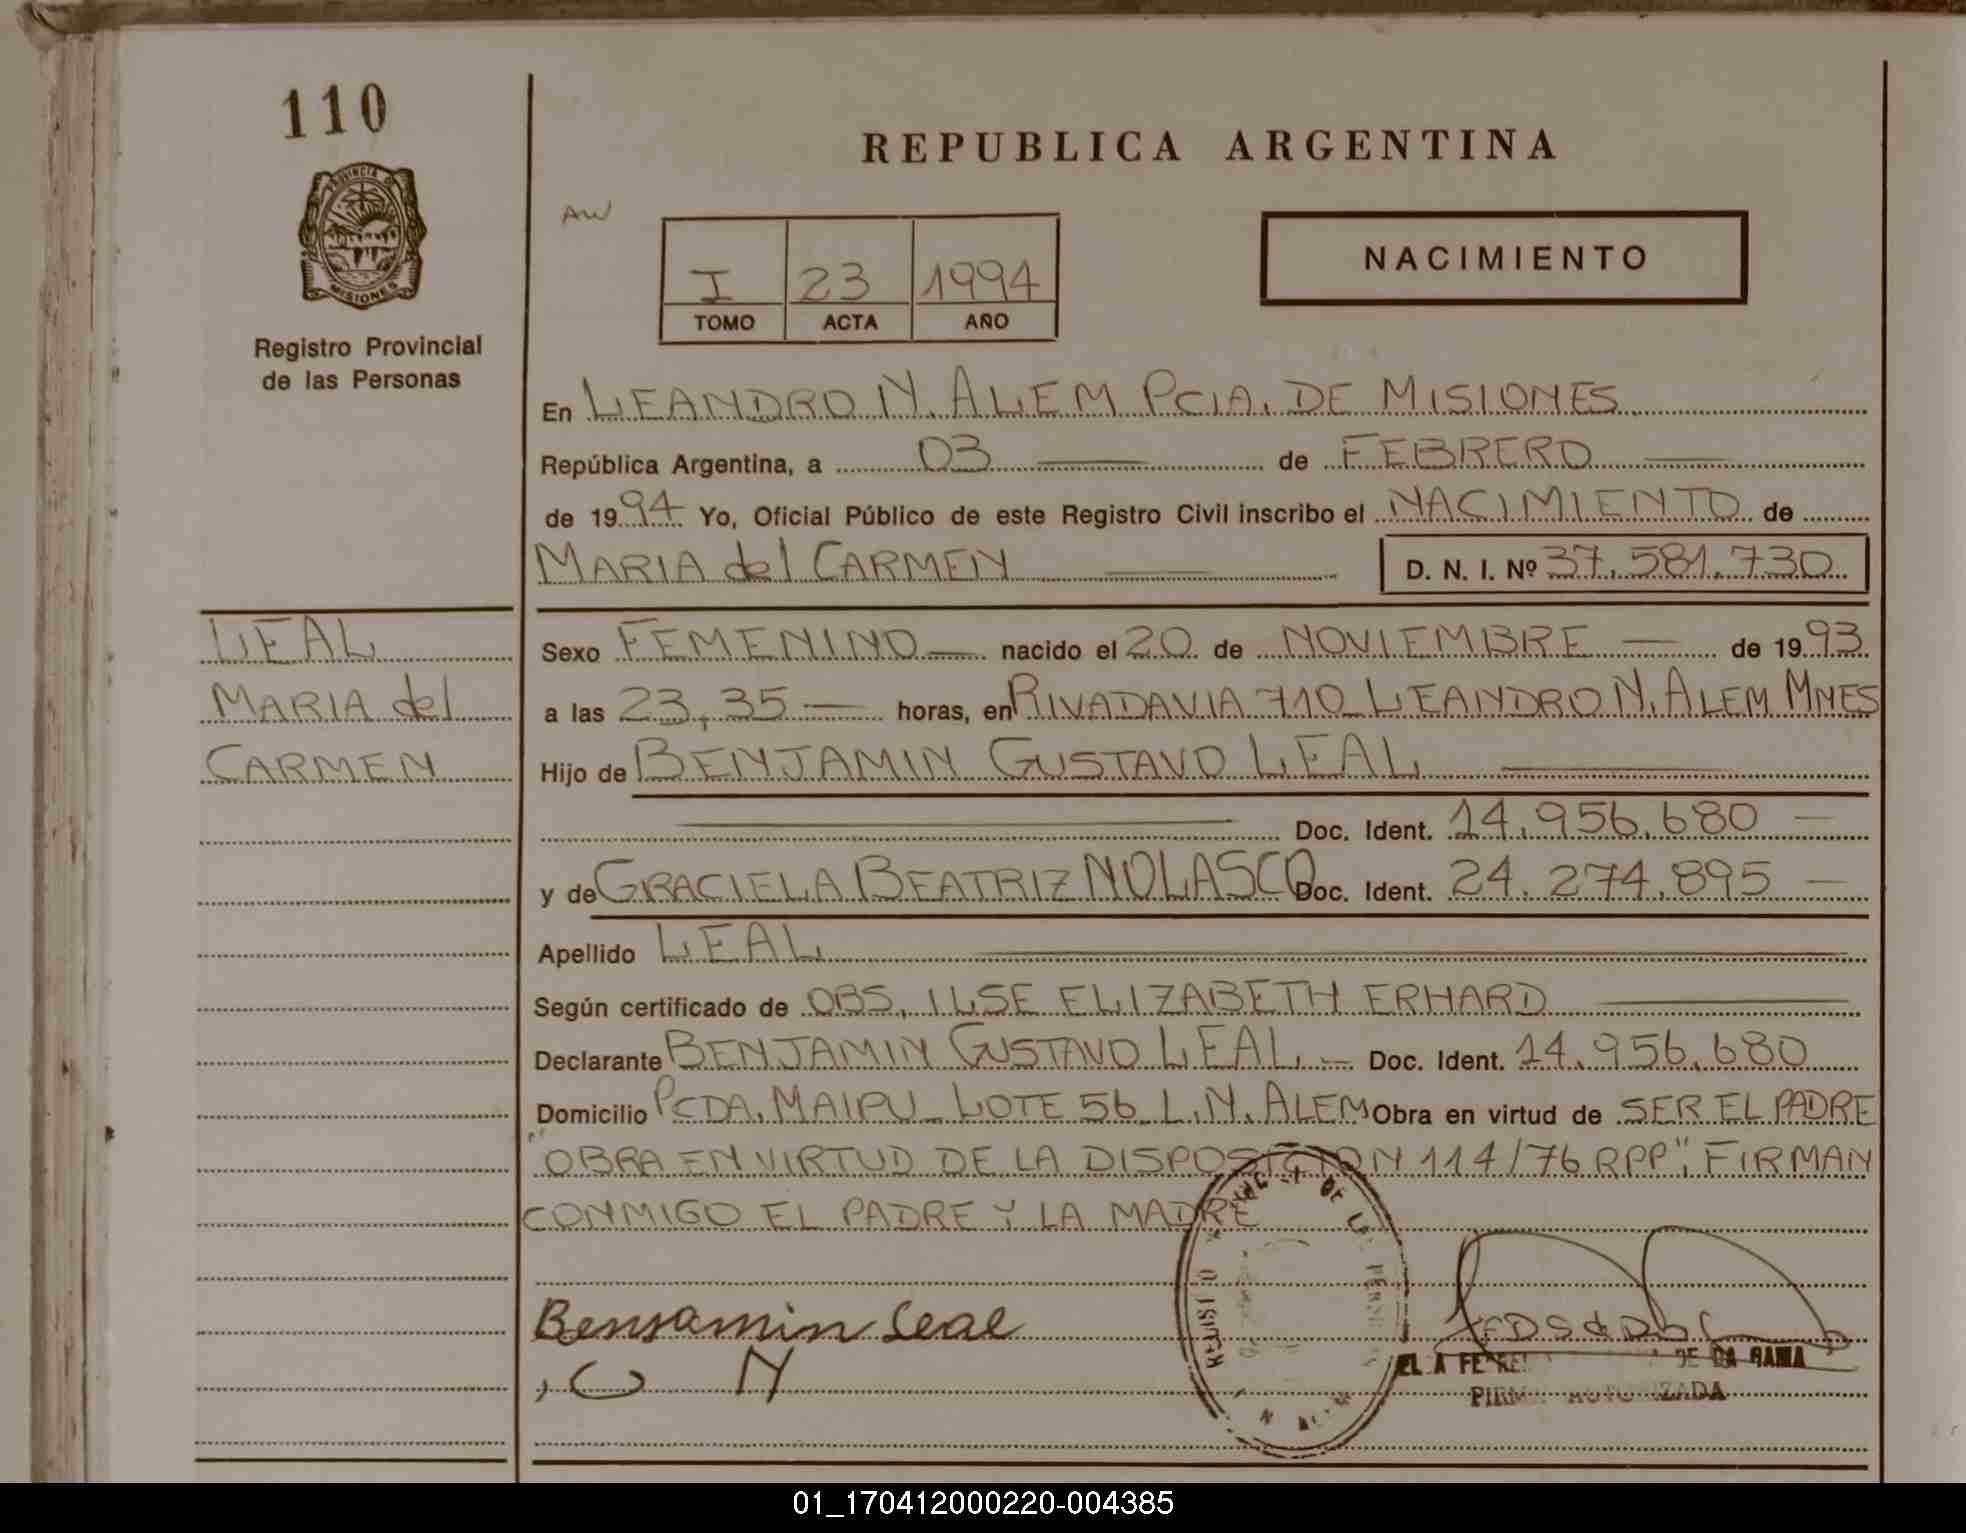 110
PROVINCIA DE
MISIONES
Registro Provincial
de las Personas
LEAL
MARIA del
CARMEN
REPUBLICA ARGENTINA
AW
I 23 1994
TOMO ACTA AÑO
NACIMIENTO
En LEANDRO N. ALEM PCIA. DE MISIONES
República Argentina, a 03 de FEBRERO
de 1994 Yo, Oficial Público de este Registro Civil inscribo el NACIMIENTO de
MARIA del CARMEN D. N. I. Nº 37.581.730
Sexo FEMENINO nacido el 20 de NOVIEMBRE de 1993
a las 23,35 horas, en RIVADAVIA 710 LEANDRO N. ALEM MNES
Hijo de BENJAMIN GUSTAVO LEAL
Doc. Ident. 14.956.680
y de GRACIELA BEATRIZ NOLASCO Doc. Ident. 24.274.895
Apellido LEAL
Según certificado de OBS. ILSE ELIZABETH ERHARD
Declarante BENJAMIN GUSTAVO LEAL Doc. Ident. 14.956.680
Domicilio PCDA. MAIPU LOTE 56 L.N. ALEM Obra en virtud de SER EL PADRE
"OBRA EN VIRTUD DE LA DISPOSICION 114/76 RPP". FIRMAN
CONMIGO EL PADRE Y LA MADRE
Bensamin Leal
C N
01_170412000220-004385